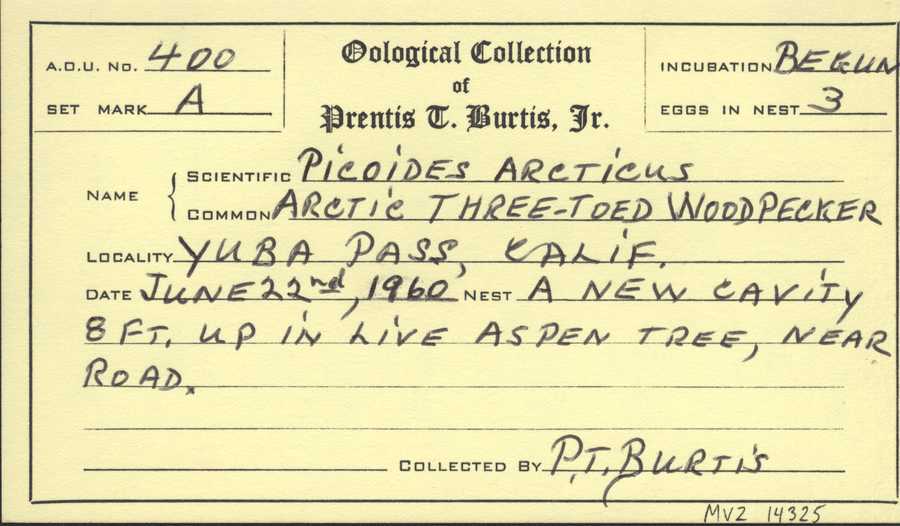 A.O.U. No. 400
Oological Collection
of
Prentis T. Burtis, Jr.
INCUBATION BEGUN
SET MARK A
EGGS IN NEST 3
NAME
SCIENTIFIC PICOIDES ARCTICUS
COMMON ARCTIC THREE-TOED WOODPECKER
LOCALITY YUBA PASS, CALIF.
DATE JUNE 22nd, 1960 NEST A NEW CAVITY
8 FT. UP IN LIVE ASPEN TREE, NEAR
ROAD.
COLLECTED BY P.T. BURTIS
MVZ 14325